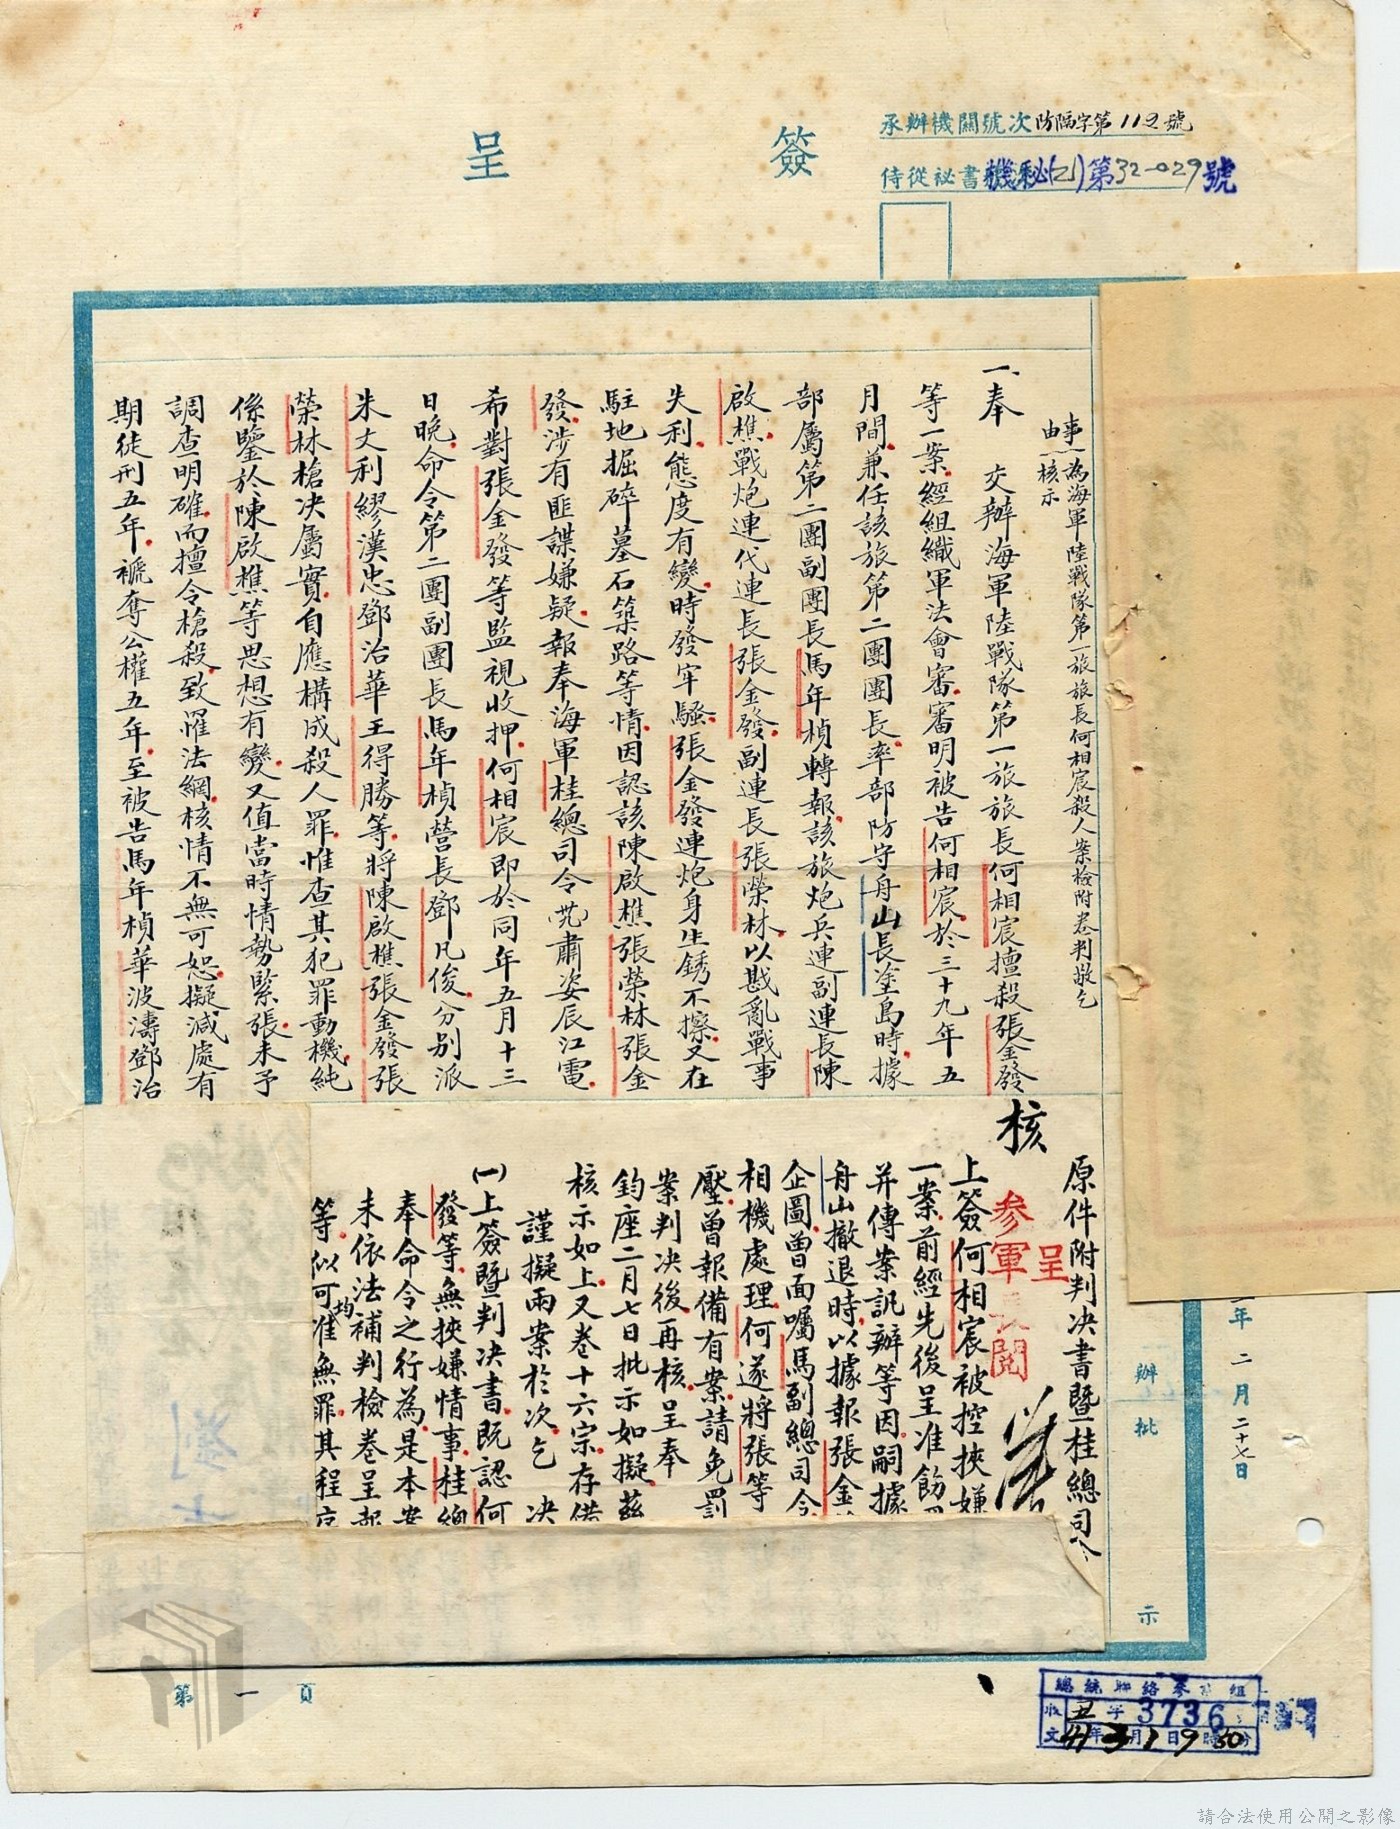 簽呈
承辦機關號次防隔字第112號
侍從祕書機秘(乙)第32-029號
事由
為海軍陸戰隊第一旅旅長何相宸殺人案檢附卷判敬乞
核示
一、奉 交辦海軍陸戰隊第一旅旅長何相宸擅殺張金發
等一案經組織軍法會審審明被告何相宸於三十九年五
月間兼任該旅第二團團長率部防守舟山長塗島時據
部屬第二團副團長馬年楨轉報該旅炮兵連副連長陳
啟樵戰炮連代連長張金發副連長張榮林以戡亂戰事
失利態度有變時發牢騷張金發連炮身生銹不擦又在
駐地掘碎墓石築路等情因認該陳啟樵張榮林張金
發涉有匪諜嫌疑報奉海軍桂總司令 肅姿辰江電
希對張金發等監視收押何相宸即於同年五月十三
日晚命令第二團副團長馬年楨營長鄧凡俊分別派
朱文利繆漢忠鄧治華王得勝等將陳啟樵張金發張
榮林槍決屬實自應構成殺人罪惟查其犯罪動機純
係鑒於陳啟樵等思想有變又值當時情勢緊張未予
調查明確而擅令槍殺致罹法網核情不無可恕擬減處有
期徒刑五年褫奪公權五年至被告馬年楨華波濤鄧治
核
原件附判決書暨桂總司令
呈
參軍長閱
上簽何相宸被控挾嫌
一案前經先後呈准飭
并傳案訊辦等因嗣據
舟山撤退時以據報張金
企圖曾面囑馬副總司令
相機處理何遂將張等
壓曾報備有案請免罰
案判決後再核呈奉
鈞座二月七日批示如擬茲
核示如上又卷十六宗存備
謹擬兩案於次乞 決
(一)上簽暨判決書既認何
發等無挾嫌情事桂總
奉命令之行為是本案
未依法補判檢卷呈部
等似可均准無罪其程序
年二月二十七日
辦
批
示
第一頁
總統聯絡參 組
收文 丑字3736號
41年3月1日9時50分
請合法使用公開之影像